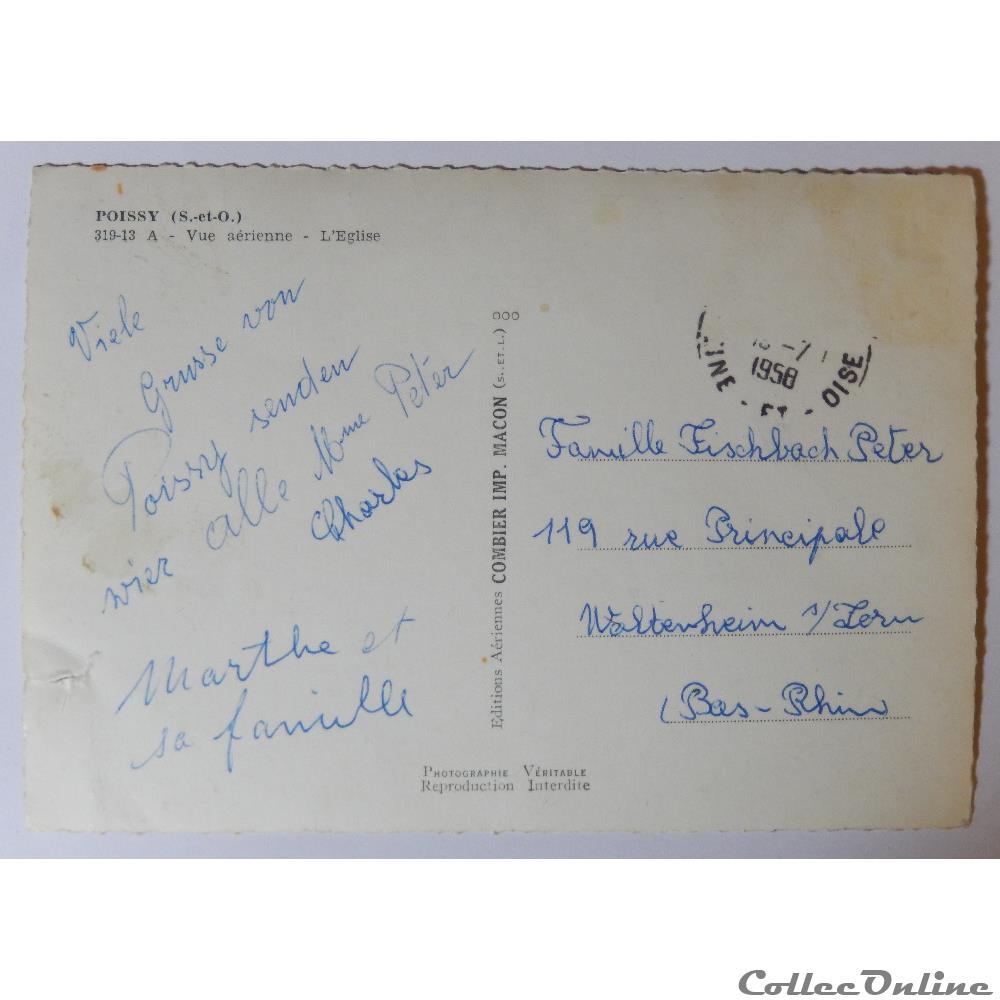 POISSY (S.-et-O.)
319-13 A - Vue aérienne - L'Eglise
Viele
Grusse von
Poissy senden
wier alle Mme Peter
Charles
Marthe et
sa famille
Editions Aériennes COMBIER IMP. MACON (S.-ET-L.)
1958
OISE
Famille Fischbach Peter
119 rue Principale
Waltenheim s/Zorn
(Bas-Rhin
PHOTOGRAPHIE VÉRITABLE
Reproduction Interdite
CollecOnline